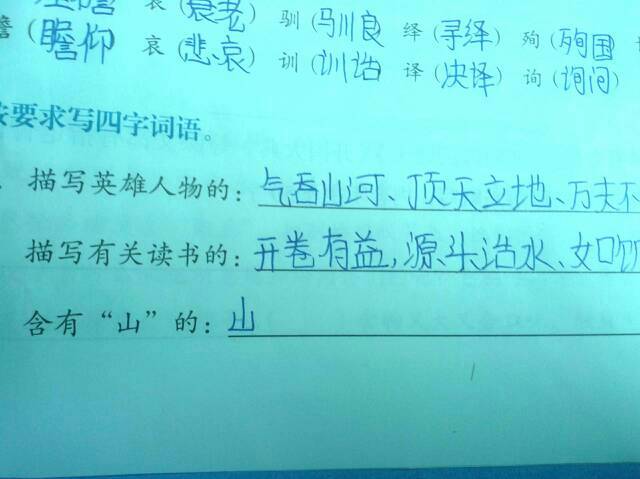 衰(衰老) 驯(驯良) 绎(寻绎) 殉(殉国)
(瞻仰) 哀(悲哀) 训(训诰) 译 询(询问)
按要求写四字词语。
描写英雄人物的:气吞山河、顶天立地、万夫不
描写有关读书的:开卷有益,源头活水、如饮
含有“山”的:山